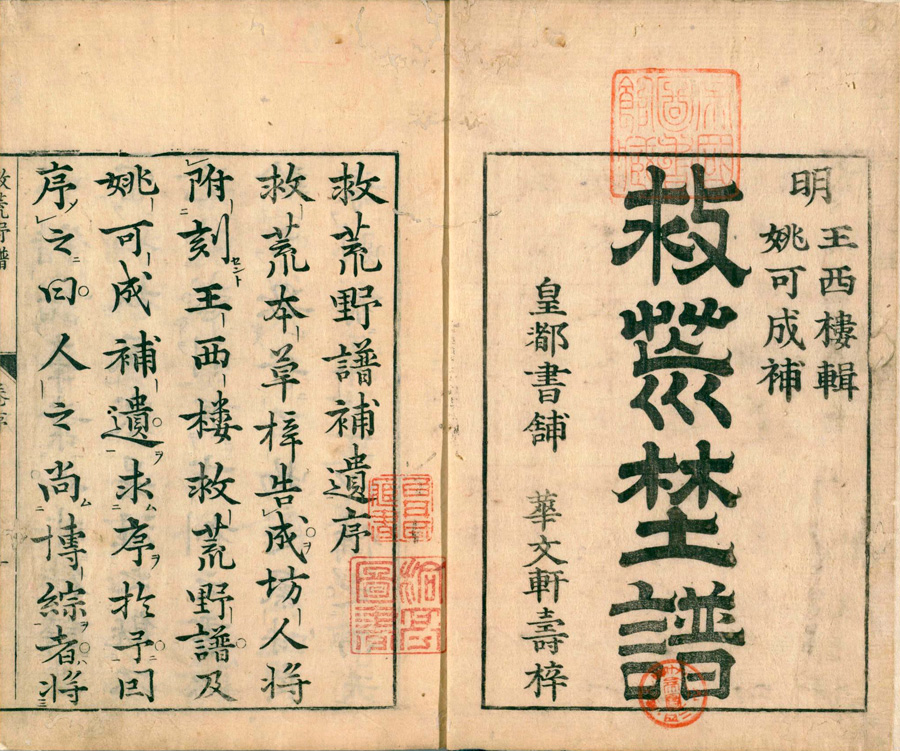 明
王西樓輯
姚可成補
救荒埜譜
皇都書舗 華文軒壽梓
救荒野譜補遺序
救荒本草梓告成坊人將
附刻王西樓救荒野譜及
姚可成補遺求序於予囙
序之曰人之尚博綜者將
救荒野譜